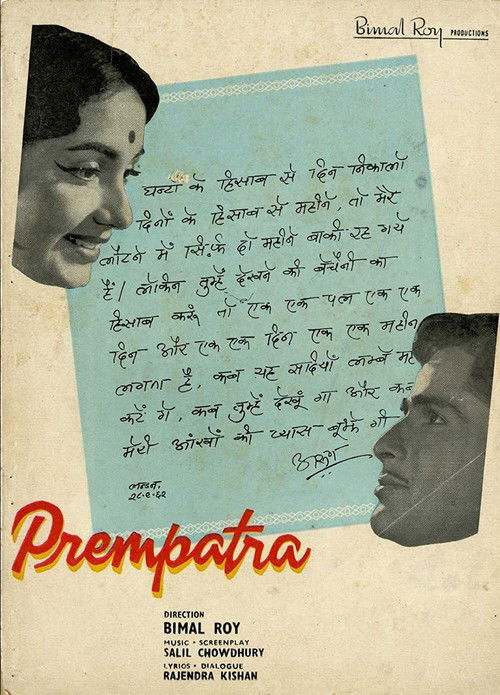 Bimal Roy PRODUCTIONS
घन्टों के हिसाब से दिन निकालो
दिनों के हिसाब से महीने, तो मेरे
लौटने में सिर्फ़ दो महीने बाकी रह गये
हैं। लेकिन तुम्हें देखने की बेचैनी का
हिसाब करूं तो एक एक पल एक एक
दिन और एक एक दिन एक एक महीन
लगता है, कब यह सदियाँ लम्बे
कटें गे, कब तुम्हें देखूं गा और कब
मेरी आंखों की प्यास बुझे गी
अरुण
लन्डन.
२८-८-६२
Prempatra
DIRECTION
BIMAL ROY
MUSIC • SCREENPLAY
SALIL CHOWDHURY
LYRICS • DIALOGUE
RAJENDRA KISHAN